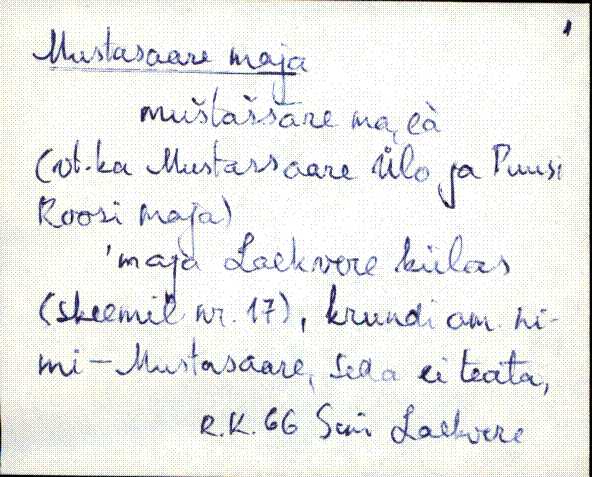 1
Mustasaare maja
muštaššāre ma͔i̯à
(vt. ka Mustassaare Ülo ja Puusi
Roosi maja)
'maja Laekvere külas
(skeemil nr. 17), krundi om. ni-
mi – Mustasaare, seda ei teata,
R.K. 66 Sim Laekvere